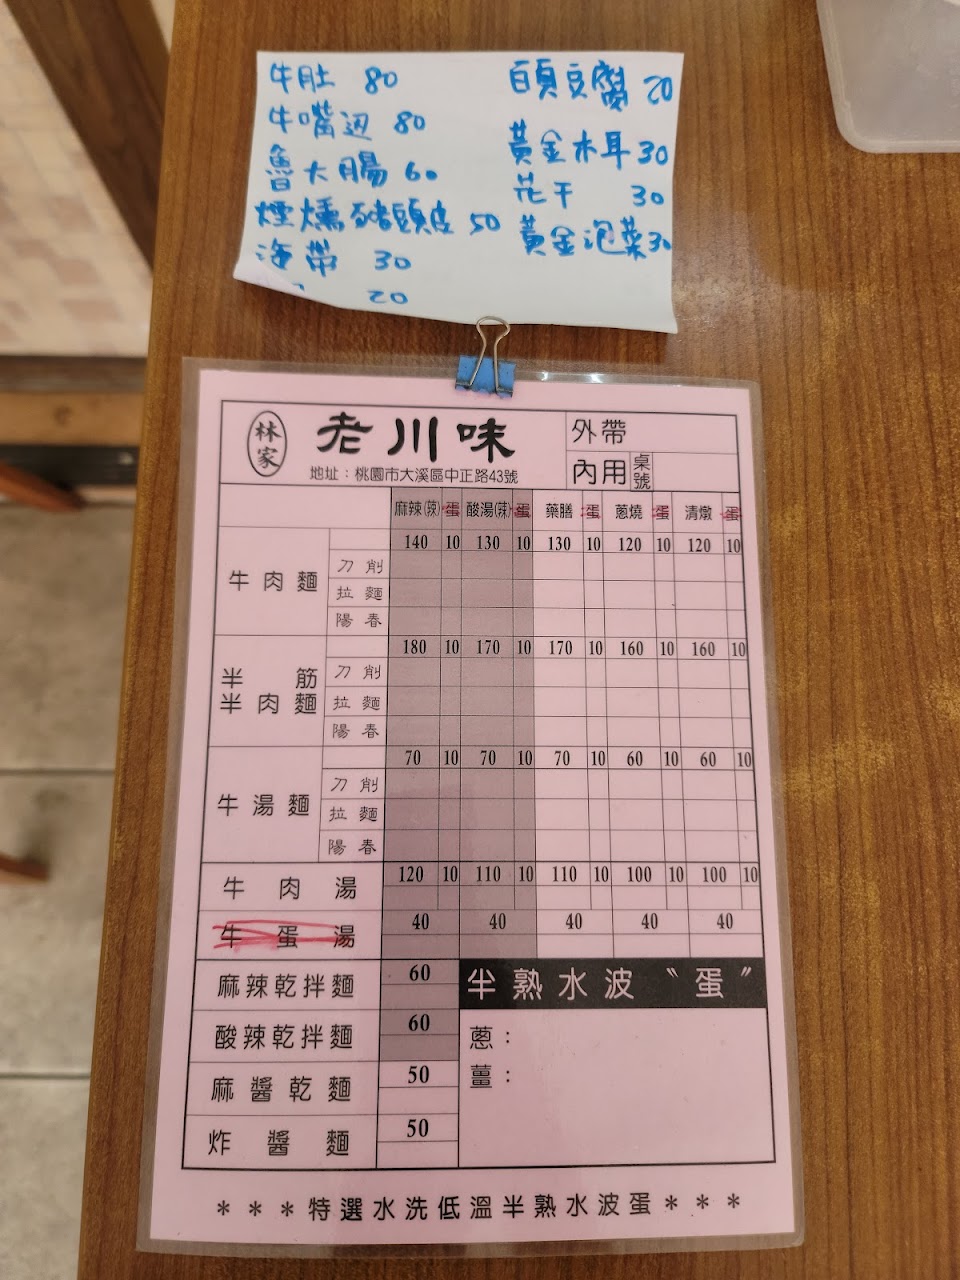 牛肚 80
牛嘴边 80
魯大腸 60
煙燻豬頭皮 50
海帶 30
20
百頁豆腐 20
黃金木耳 30
花干 30
黃金泡菜 30
林家 老川味
地址：桃園市大溪區中正路43號
外帶
內用 桌號
麻辣(辣) 蛋 酸湯(辣) 蛋 藥膳 蛋 蔥燒 蛋 清燉 蛋
牛肉麵 140 10 130 10 130 10 120 10 120 10
刀削
拉麵
陽春
半筋半肉麵 180 10 170 10 170 10 160 10 160 10
刀削
拉麵
陽春
牛湯麵 70 10 70 10 70 10 60 10 60 10
刀削
拉麵
陽春
牛肉湯 120 10 110 10 110 10 100 10 100 10
牛蛋湯 40 40 40 40 40
麻辣乾拌麵 60
酸辣乾拌麵 60
麻醬乾麵 50
炸醬麵 50
半熟水波〝蛋〞
蔥：
薑：
***特選水洗低溫半熟水波蛋***